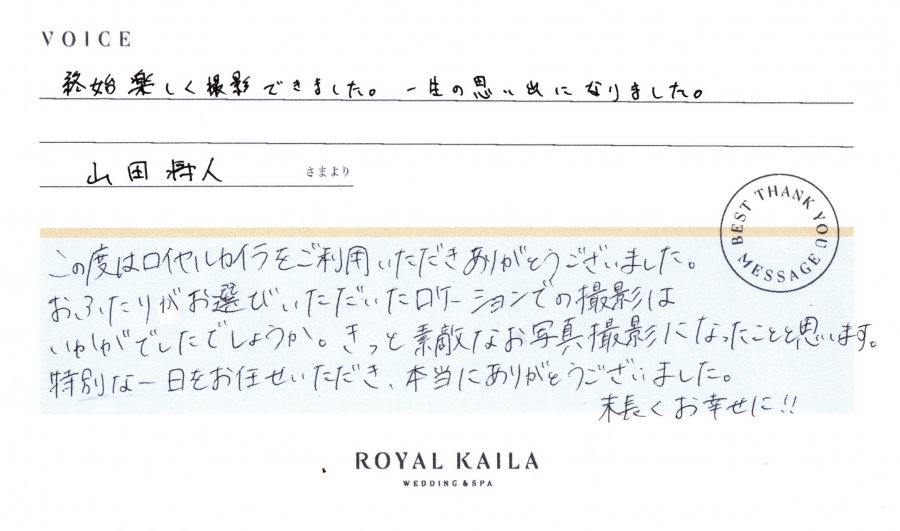 VOICE
終始楽しく撮影できました。一生の思い出になりました。
山田将人 さまより
BEST THANK YOU MESSAGE
この度はロイヤルカイラをご利用いただきありがとうございました。
おふたりがお選びいただいたロケーションでの撮影は
いかがでしたでしょうか。きっと素敵なお写真撮影になったことと思います。
特別な一日をお任せいただき、本当にありがとうございました。
末長くお幸せに!!
ROYAL KAILA
WEDDING & SPA